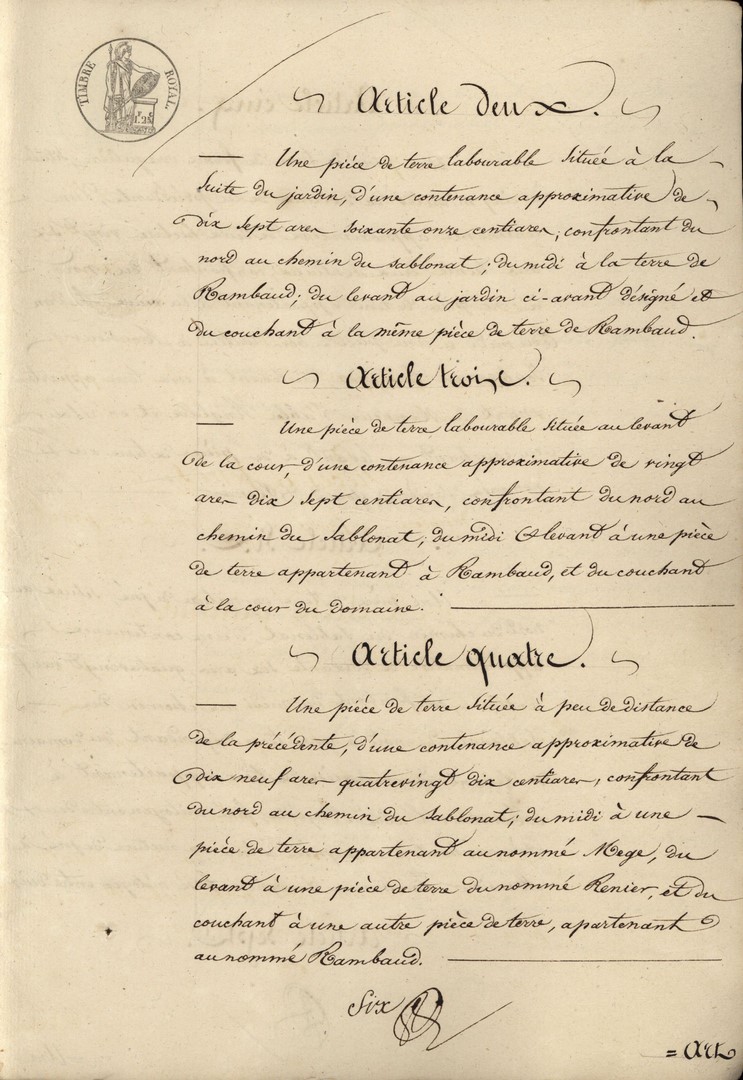 TIMBRE ROYAL
1f.25
Article deux.
Une pièce de terre labourable située à la
suite du jardin, d'une contenance approximative de
dix sept ares soixante onze centiares, confrontant du
nord au chemin du sablonat; du midi à la terre de
Rambaud; du levant au jardin ci-avant désigné et
du couchant à la même pièce de terre de Rambaud.
Article trois.
Une pièce de terre labourable située au levant
de la cour, d'une contenance approximative de vingt
ares dix sept centiares, confrontant du nord au
chemin du Sablonat; du midi & levant à une pièce
de terre appartenant à Rambaud, et du couchant
à la cour du domaine.
Article quatre.
Une pièce de terre située à peu de distance
de la précédente, d'une contenance approximative de
dix neuf ares quatrevingt dix centiares, confrontant
du nord au chemin du Sablonat; du midi à une
pièce de terre appartenant au nommé Mege, du
levant à une pièce de terre du nommé Renier, et du
couchant à une autre pièce de terre, apartenant
au nommé Rambaud.
Six
= Art